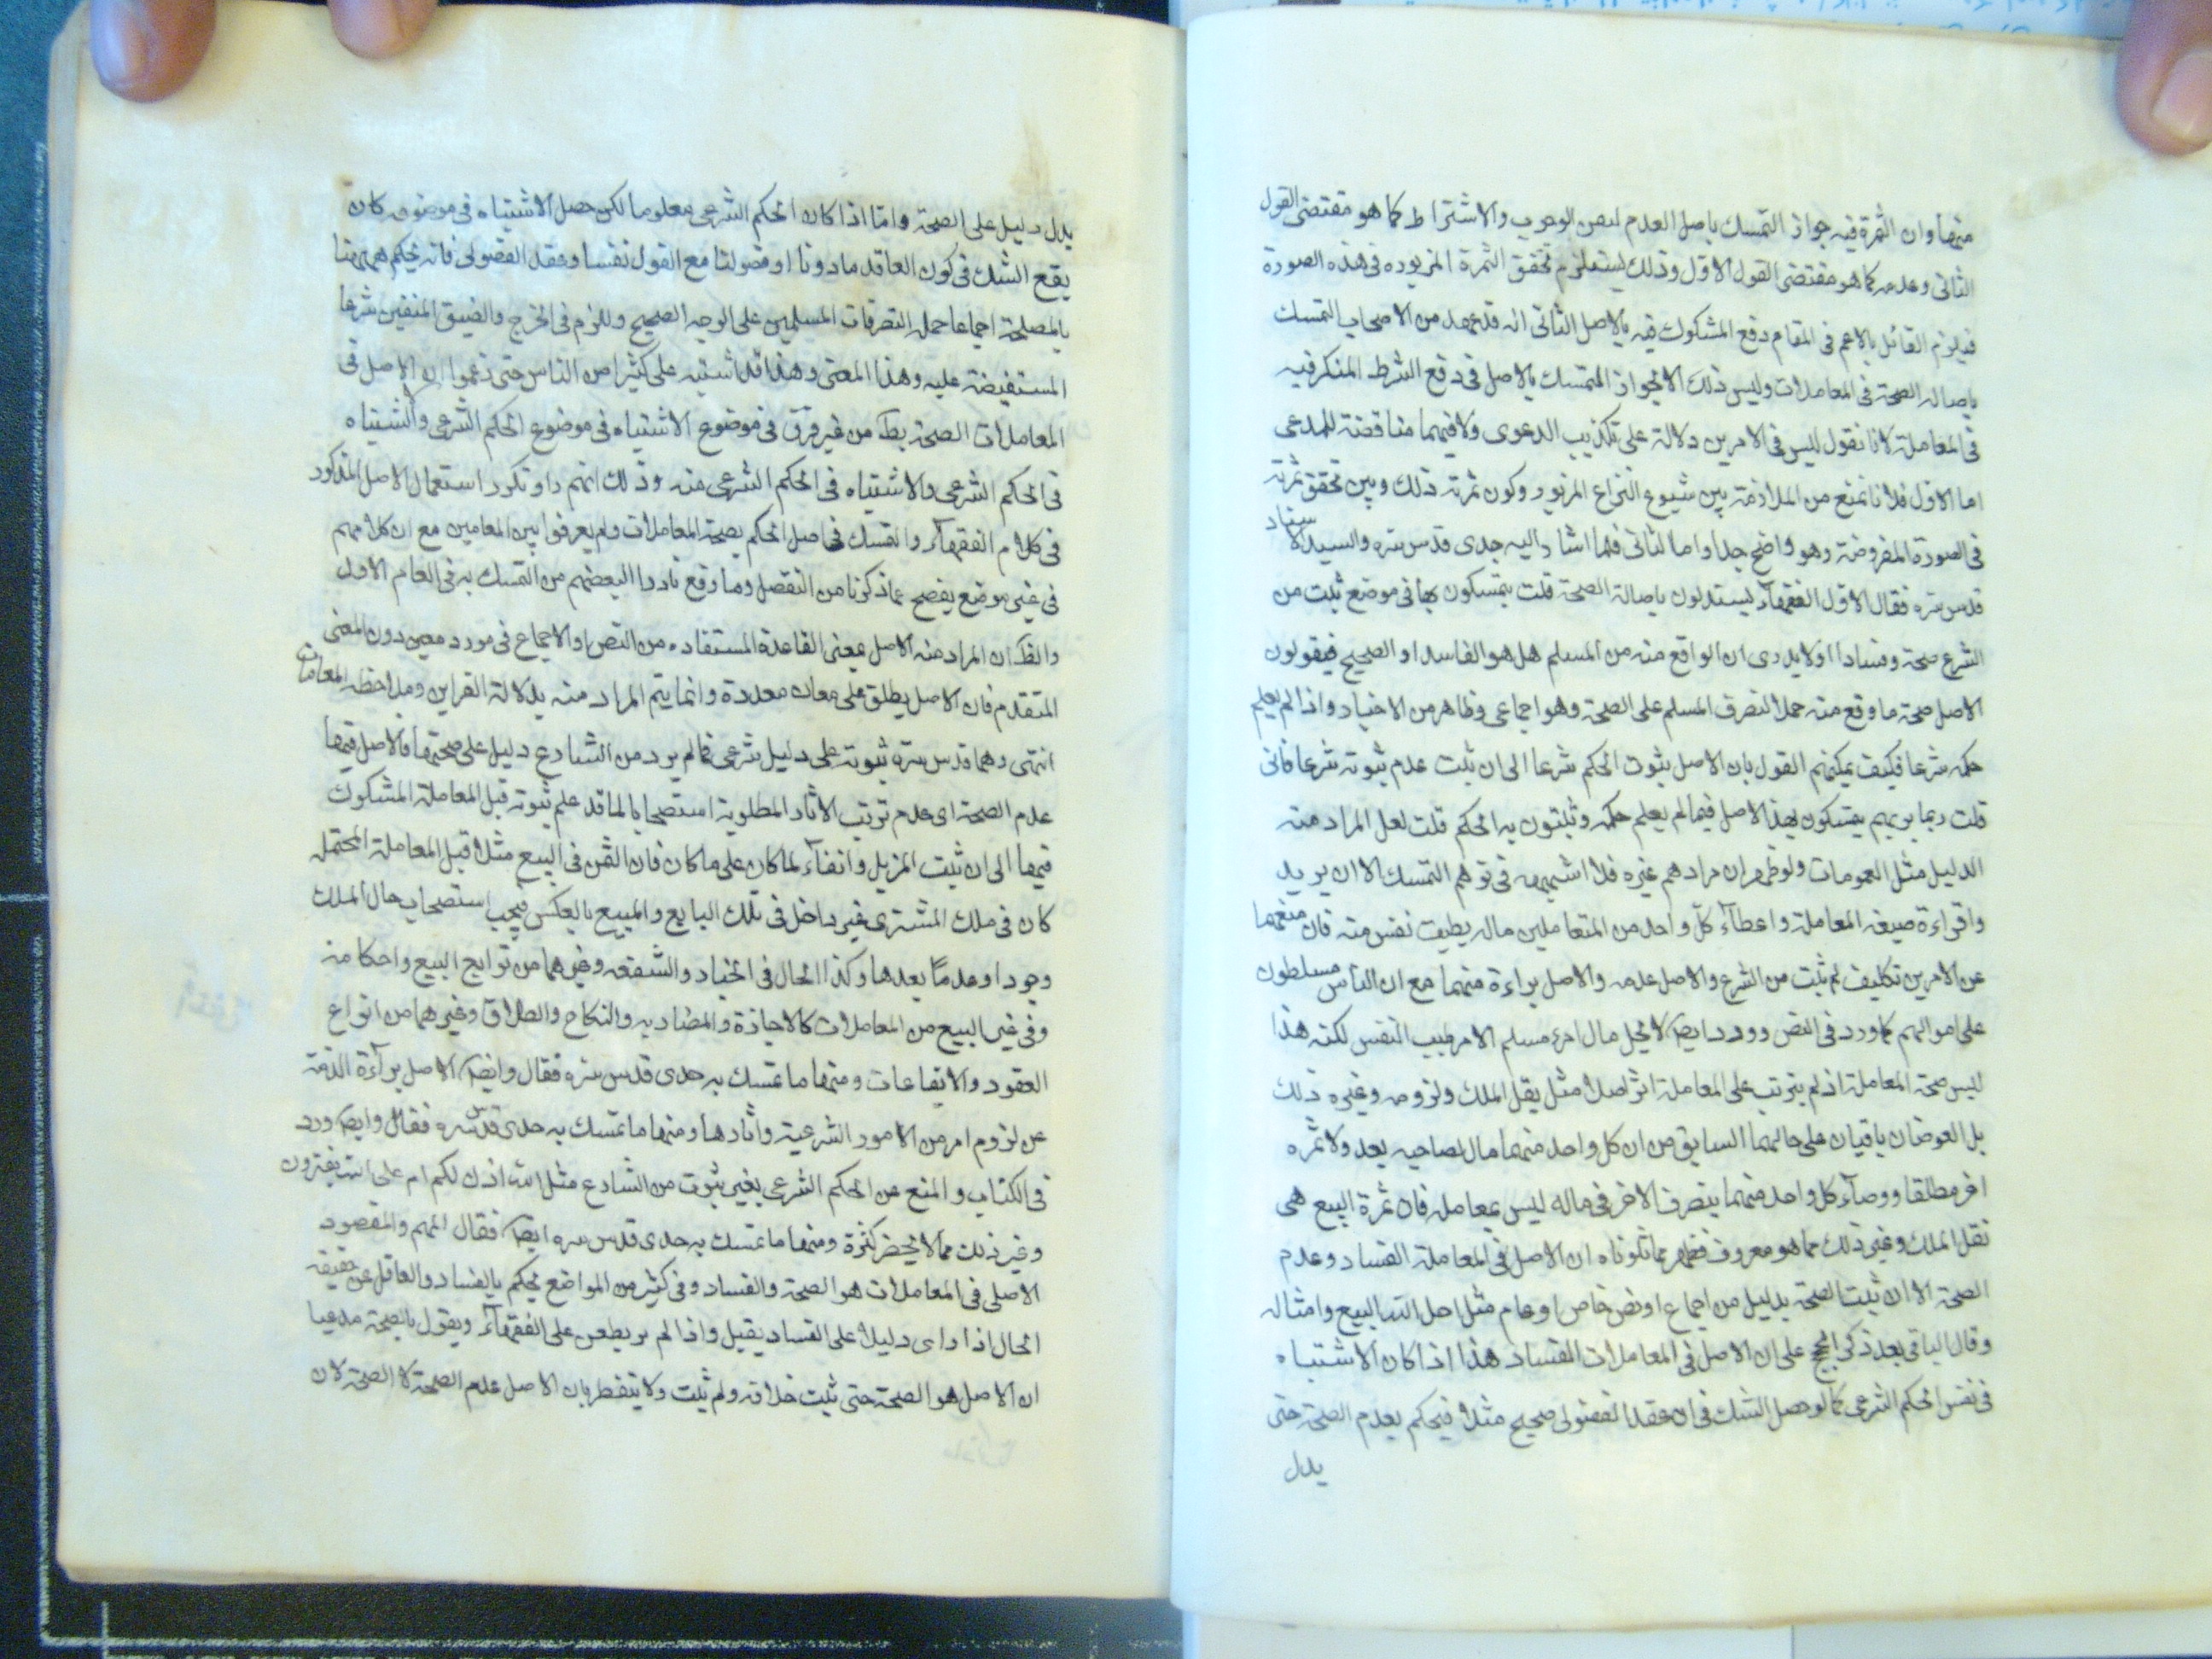 منها وان الثمرة فيه جواز التمسك باصل العدم لنفى الوجوب والاشتراط كما هو مقتضى القول
الثانى وعدمه كما هو مقتضى القول الاول وذلك يستلزم تحقق الثمرة المزبوره فى هذه الصورة
فيلزم القائل بالاعم فى المقام دفع المشكوك فيه بالاصل الثانى انه قد عهد من الاصحاب التمسك
باصالة الصحة فى المعاملات وليس ذلك الا لجواز التمسك بالاصل فى دفع الشرط المنكر فيه
فى المعاملة لانا نقول ليس فى الامرين دلالة على تكذيب الدعوى ولا فيهما مناقضة للمدعى
اما الاول فلانا نمنع من الملازمة بين شيوع النزاع المزبور وكون ثمرته ذلك وبين تحقق ثمرته
فى الصورة المفروضة وهو واضح جدا واما الثانى فلما اشار اليه جدى قدس سره والسيد الاستاد
قدس سره فقال الاول الفقهآء يستدلون باصالة الصحة قلت يتمسكون بها فى موضع ثبت من
الشرع صحة وفسادا ولا يدرى ان الواقع منه من المسلم هل هو الفاسد او الصحيح فيقولون
الاصل صحة ما وقع منه حملا لتصرف المسلم على الصحة وهو اجماعى وظاهر من الاخبار واذا لم يعلم
حكمه شرعا فكيف يمكنهم القول بان الاصل ثبوت الحكم شرعا الى ان ثبت عدم ثبوته شرعا فانى
قلت ربما نريهم يتمسكون بهذا الاصل فيما لم يعلم حكمه وثبتون به الحكم قلت لعل المراد منه
الدليل مثل العمومات ولو ظهر ان مرادهم غيره فلا فى توهم التمسك الا ان يريد
واقراءة صيغة المعاملة واعطآء كل واحد من المتعاملين ماله بطيب نفس منه فان منعهما
عن الامرين تكليف لم ثبت من الشرع والاصل عدمه والاصل براءة منهما مع ان الناس مسلطون
على اموالهم كما ورد فى النص وورد ايضا لا يحل مال امرء مسلم الا من طيب النفس لكنه هذا
ليس صحة المعاملة اذ لم يترتب على المعاملة اثر اصلا مثل نقل الملك ولزومه وغيره ذلك
بل العوضان باقيان على حالهما السابق من ان كل واحد منهما مال لصاحبه بعد ولا ثمره
اخر مطلقا ورضآء كل واحد منهما بتصرف الاخر فى ماله ليس بمعامله فان ثمرة البيع هى
نقل الملك وغير ذلك مما هو معروف فظهر مما تلوناه ان الاصل فى المعاملة الفساد وعدم
الصحة الا ان ثبت الصحة بدليل من اجماع او نص خاص او عام مثل احل الله البيع وامثاله
وقال الباقى بعد ذكر الحجج على ان الاصل فى المعاملات الفساد هذا اذا كان الاشتباه
فى نفس الحكم الشرعى كما لو حصل الشك فى ان عقد الفضولى صحيح مثلا فيحكم بعدم الصحة حتى
يدل
يدل دليل على الصحة واما اذا كان الحكم الشرعى معلوما لكن حصل الاشتباه فى موضوعه كان
يقع الشك فى كون العاقد ماذونا او فضوليا مع القول بفساد عقد الفضولى فانه يحكم هيهنا
بالصحة اجماعا حملا لتصرفات المسلمين على الوجه الصحيح وللزم فى الحرج والضيق المنفيين شرعا
المستفيضة عليه وهذا المعنى وهذا قد اشتبه على كثيرا من الناس حتى زعموا ان الاصل فى
المعاملات الصحة بط من غير فرق فى موضوع الاشتباه فى موضوع الحكم الشرعى والشتباه
فى الحكم الشرعى والاشتباه فى الحكم الشرعى منه وذلك انهم راو تكرر استعمال الاصل المذكور
فى كلام الفقهآء والتمسك فى اصل الحكم بصحة المعاملات ولم يعرفوا بين المعامين مع ان كلامهم
فى غير موضع يفصح عما ذكرنا من التفصل وما وقع نادرا البعضهم من التمسك به فى العام الاول
والظ ان المراد منه الاصل بمعنى القاعدة المستفاده من النص او الاجماع فى مورد معين دون المعنى
المتقدم فان الاصل يطلق على معان معددة وانما يتم المراد منه بدلالة القراين وملاحظة المعامات
انتهى وهما قدس سرة ثبوته على دليل شرعى فما لم يرد من الشارع دليل على صحتها فالاصل فيها
عدم الصحة اى عدم ترتب الاثار المطلوبة استصحابا لما قد علم ثبوته قبل المعاملة المشكوك
فيها الى ان ثبت المزيل وانفآء لما كان على ما كان فان الثمن فى البيع مثلا قبل المعاملة المحتمله
كان فى ملك المشترى غير داخل فى تلك البايع والمبيع بالعكس فيجب استصحاب حال الملك
وجودا وعدمًا بعدها وكذا الحال فى الخيار والشفعه وغيرهما من توابع البيع واحكامه
وفى غير البيع من المعاملات كالاجازة والمضاربه والنكاح والطلاق وغيرهما من انواع
العقود والايقاعات ومنها ما تمسك به جدى قدس سره فقال وايضا الاصل برآءة الذمة
عن لزوم امر من الامور الشرعية واثارها ومنها ما تمسك به جدى قدس سره فقال وايضا ورد
فى الكتاب والمنع عن الحكم الشرعى بغير ثبوت من الشارع مثل الله اذن لكم ام على الله تفترون
وغير ذلك مما لا يحضر كثرة ومنها ما تمسك به جدى قدس سره ايضا فقال انهم والمقصود
الاصلى فى المعاملات هو الصحة والفساد وفى كثير من المواضع يحكم بالفساد والعاقل عن حقيقة
الحال اذا راى دليلا على الفساد يقبل واذا لم ير يطعن على الفقهآء ويقول بالصحة مدعيا
ان الاصل هو الصحة حتى ثبت خلافه ولم ثبت ولا يتفطر بان الاصل عدم الصحة لا الصحة لان